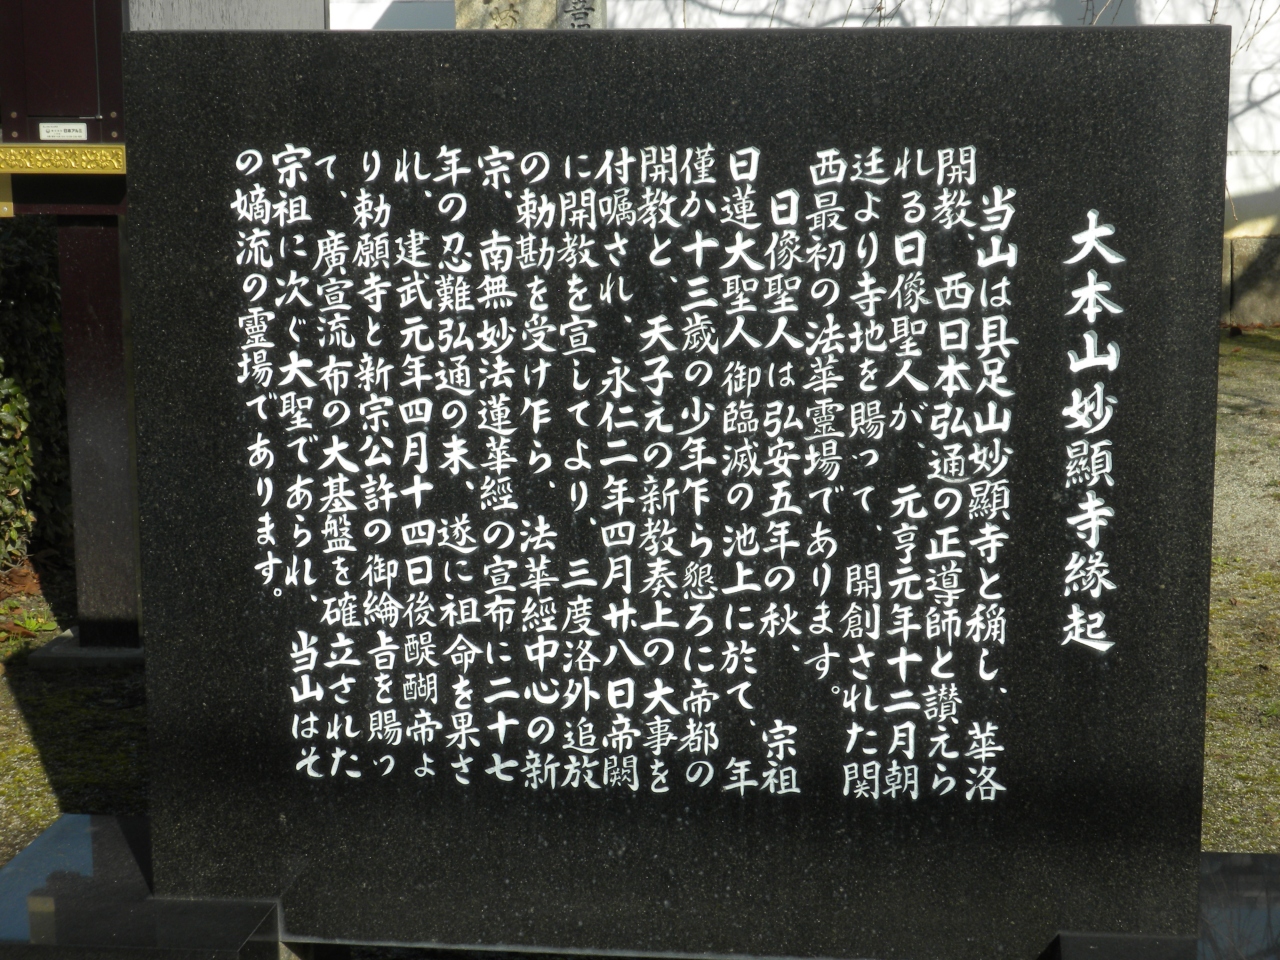 大本山妙顯寺縁起
当山は具足山妙顯寺と稱し、華洛
開教、西日本弘通の正導師と讃えら
れる日像聖人が、元亨元年十二月朝
廷より寺地を賜って、開創された関
西最初の法華靈場であります。
日像聖人は弘安五年の秋、宗祖
日蓮大聖人御臨滅の池上に於て、年
僅か十三歳の少年乍ら懇ろに帝都の
開教と、天子元の新教奏上の大事を
付嘱され、永仁二年四月廿八日帝闕
に開教を宣してより、三度洛外追放
の勅勘を受け乍ら、法華經中心の新
宗、南無妙法蓮華經の宣布に二十七
年の忍難弘通の末、遂に祖命を果さ
れ、建武元年四月十四日後醍醐帝よ
り勅願寺と新宗公許の御綸旨を賜っ
て、廣宣流布の大基盤を確立された
宗祖に次ぐ大聖であられ、当山はそ
の嫡流の靈場であります。